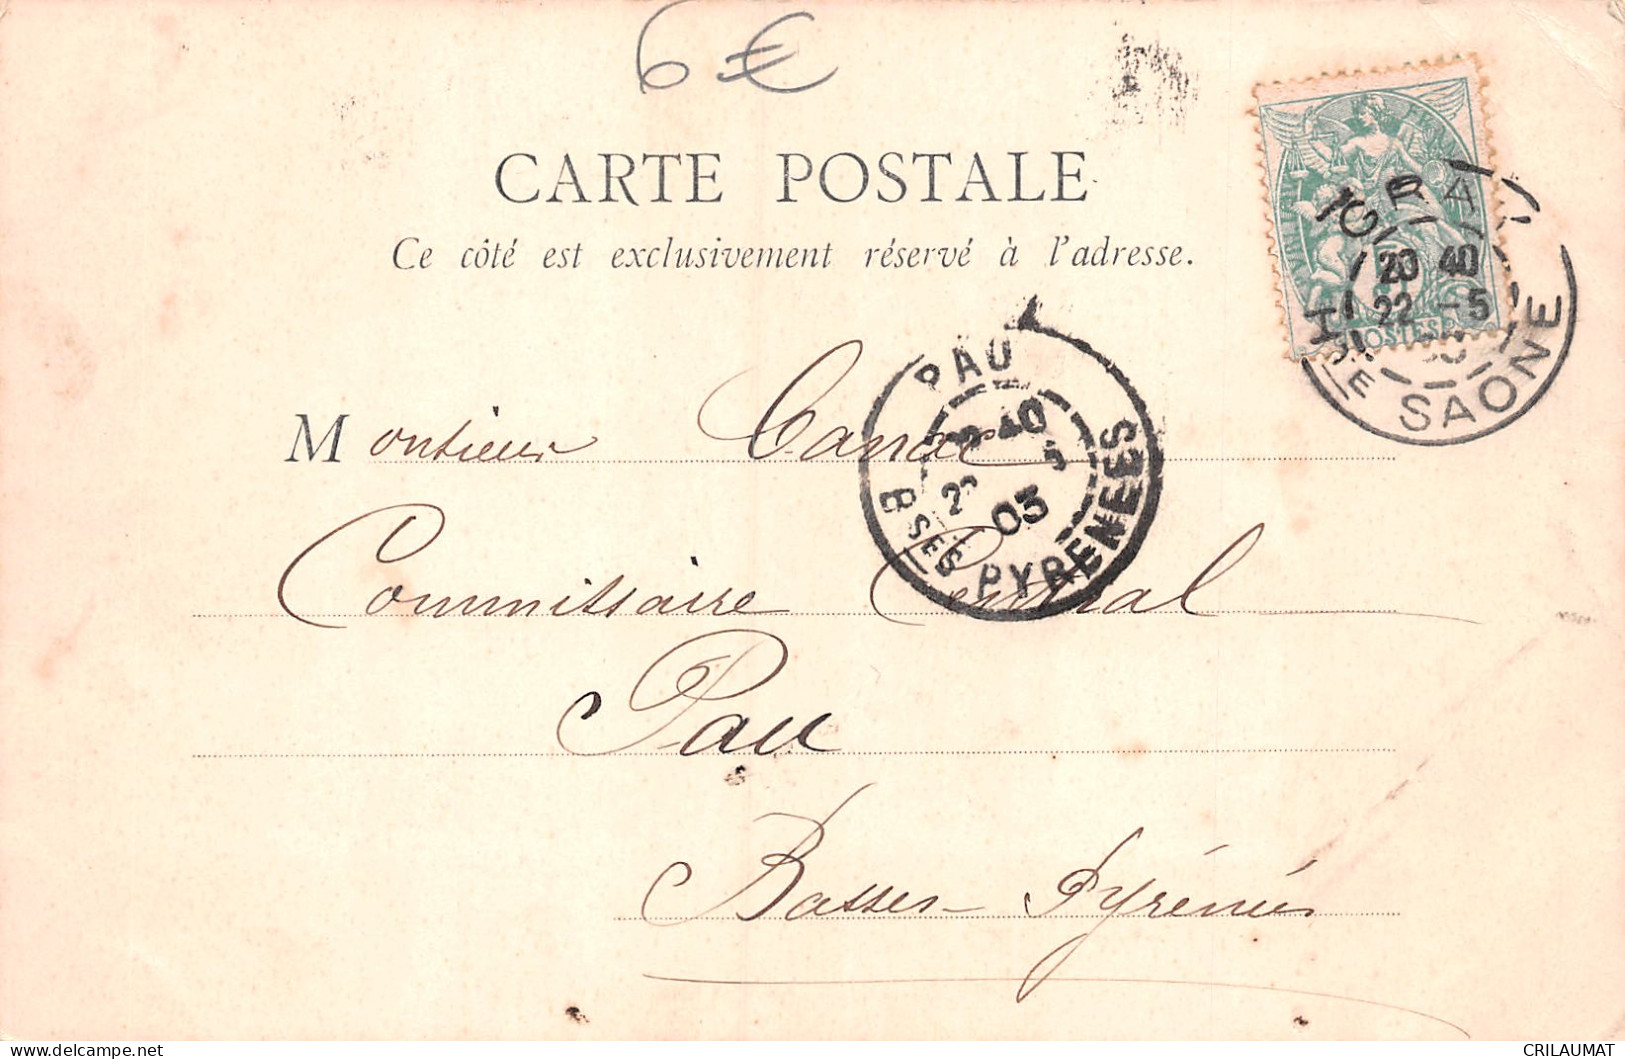 6 €
CARTE POSTALE
Ce côté est exclusivement réservé à l'adresse.
GRAY
20 40
22 -5
03
HTE SAONE
POSTES
PAU
40
5
03
BSES PYRENEES
Monsieur
Commissaire Central
Pau
Basses-Pyrénées
CRILAUMAT